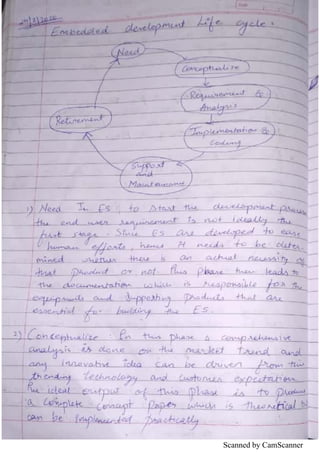 Embedded development Life cycle :
Need
Conceptualize
Requirement &
Analysis
Retirement
Implementation &
coding
Support
and
Maintenance
1) Need In ES : to start the development process
the end user requirement is not ideally the
first stage. Since ES are developed to ease
human efforts, hence it needs to be deter-
mined whether there is an actual necessity of
that product or not. This phase then leads to
the documentation which is responsible for the
equipments and supporting products that are
essential for building the ES.
2) Conceptualize In this phase a comprehensive
analysis is done on the market trend and
any innovative idea can be driven from this
trending technology and customer expectation
The ideal output of this phase is to produce
a complete concept paper which is theoretical
can be Implemented practically
Scanned by CamScanner